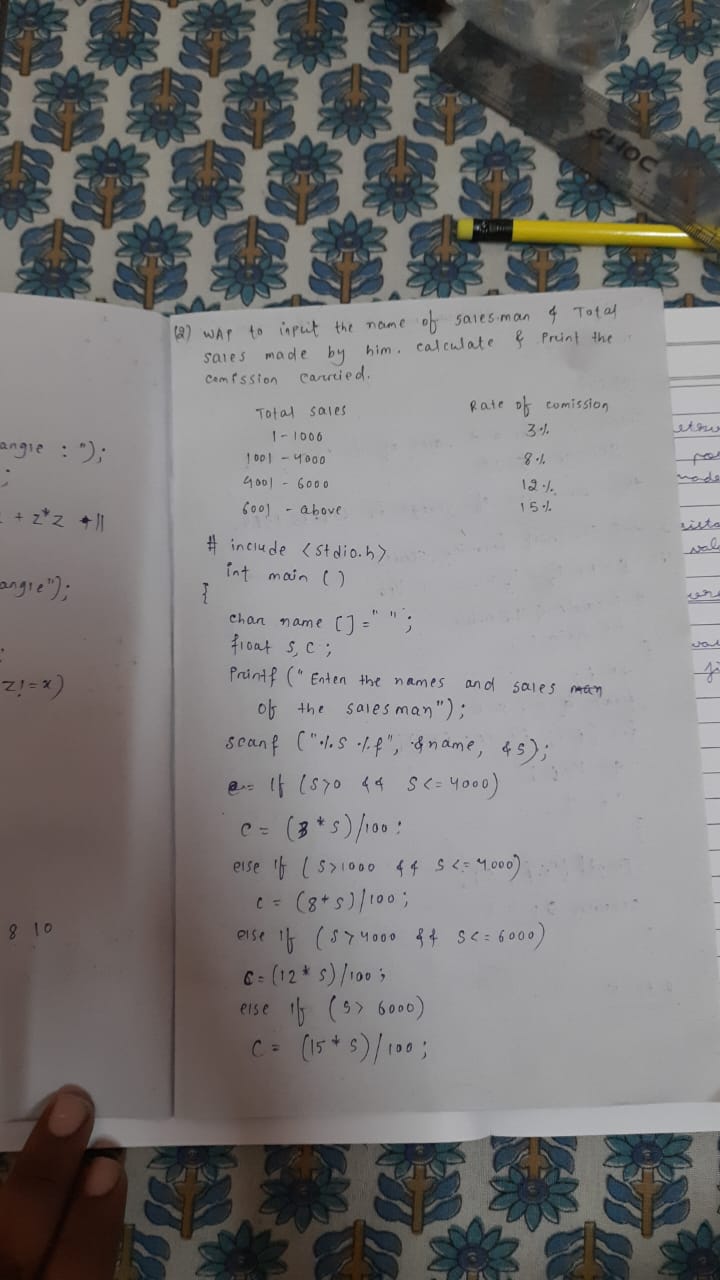 SHOC
(2) WAP to input the name of salesman & Total
sales made by him. calculate & Print the
comission carried.
Total sales Rate of comission
1-1000 3%
1001 - 4000 8%
4001 - 6000 12%
6001 - above 15%
# include <stdio.h>
int main ()
{
char name [] = " ";
float s, c;
Printf (" Enter the names and sales
of the salesman");
scanf ("%s %f", &name, &s);
If (s>0 && s<=4000)
c = (3*s)/100;
else if (s>1000 && s<=4000)
c = (8*s)/100;
else if (s>4000 && s<=6000)
c = (12*s)/100;
else if (s> 6000)
c = (15*s)/100;
angle : ");
;
+ z*z
angle");
z!=x)
8 10